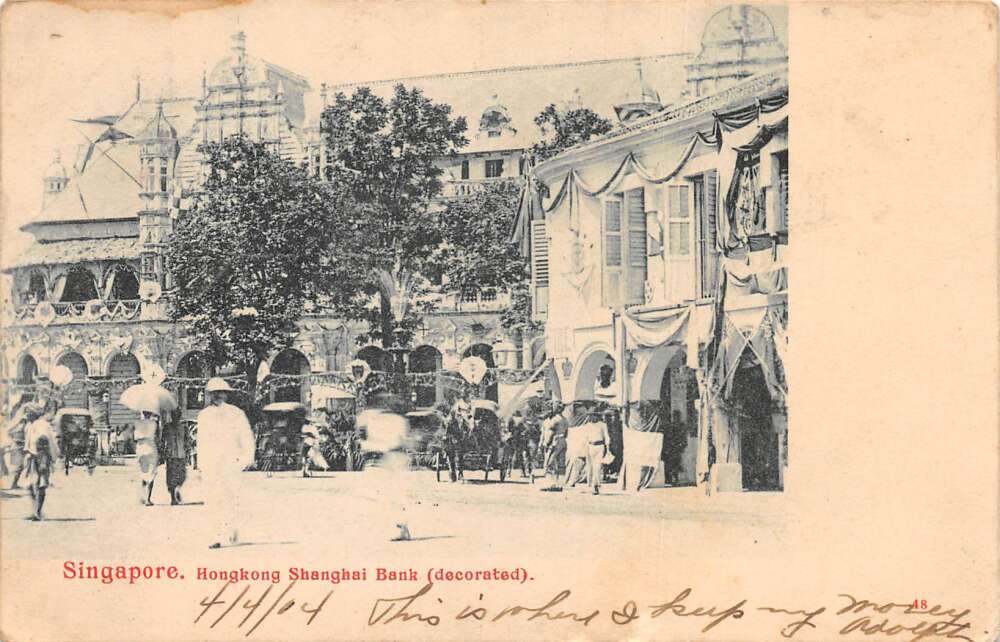 Singapore. Hongkong Shanghai Bank (decorated).
48
4/4/04 This is where I keep my money